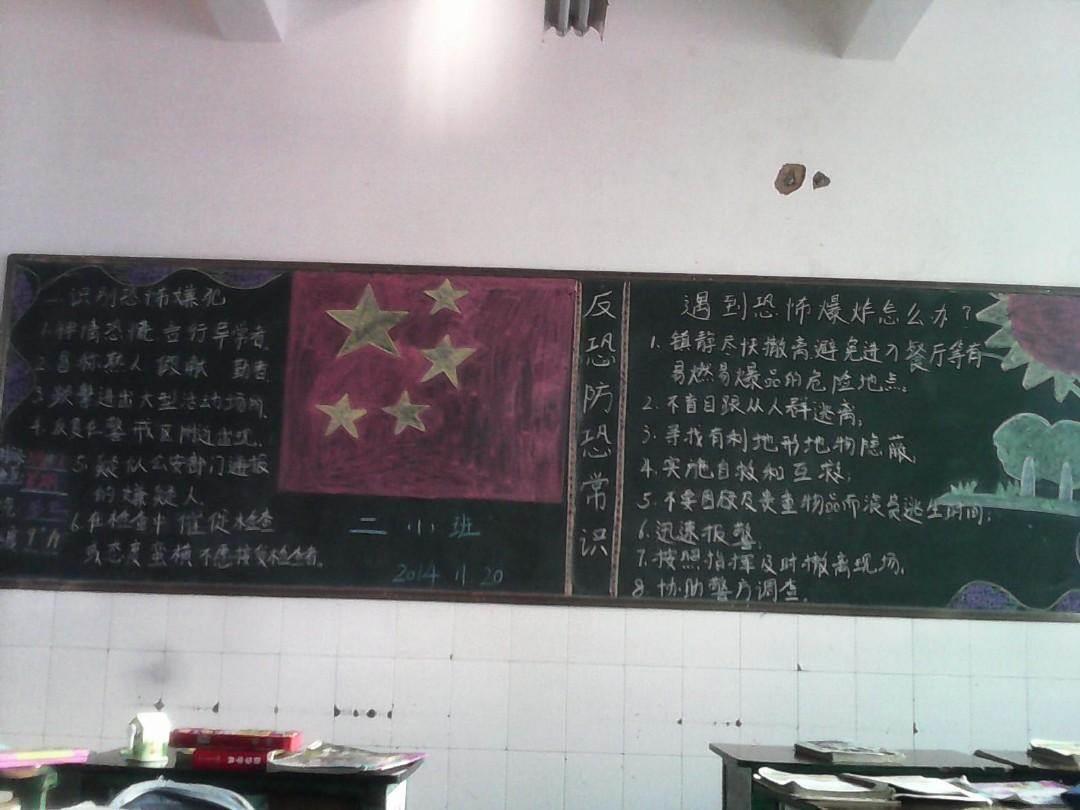 一.识别恐怖嫌犯
1.神情恐慌 言行异常者
2.冒称熟人 假献 勤者
3.频繁进出大型活动场所
4.反复在警戒区附近出现.
5.疑似公安部门通报
的嫌疑人
6.在检查中 催促检查
或态度蛮横不愿接受检查者.
二小班
2014 11 20
反恐防恐常识
遇到恐怖爆炸怎么办?
1.镇静尽快撤离避免进入餐厅等有
易燃易爆品的危险地点.
2.不盲目跟从人群逃离,
3.寻找有利地形地物隐蔽,
4.实施自救和互救,
5.不要因顾及贵重物品而浪费逃生时间.
6.迅速报警,
7.按照指挥及时撤离现场,
8.协助警方调查.